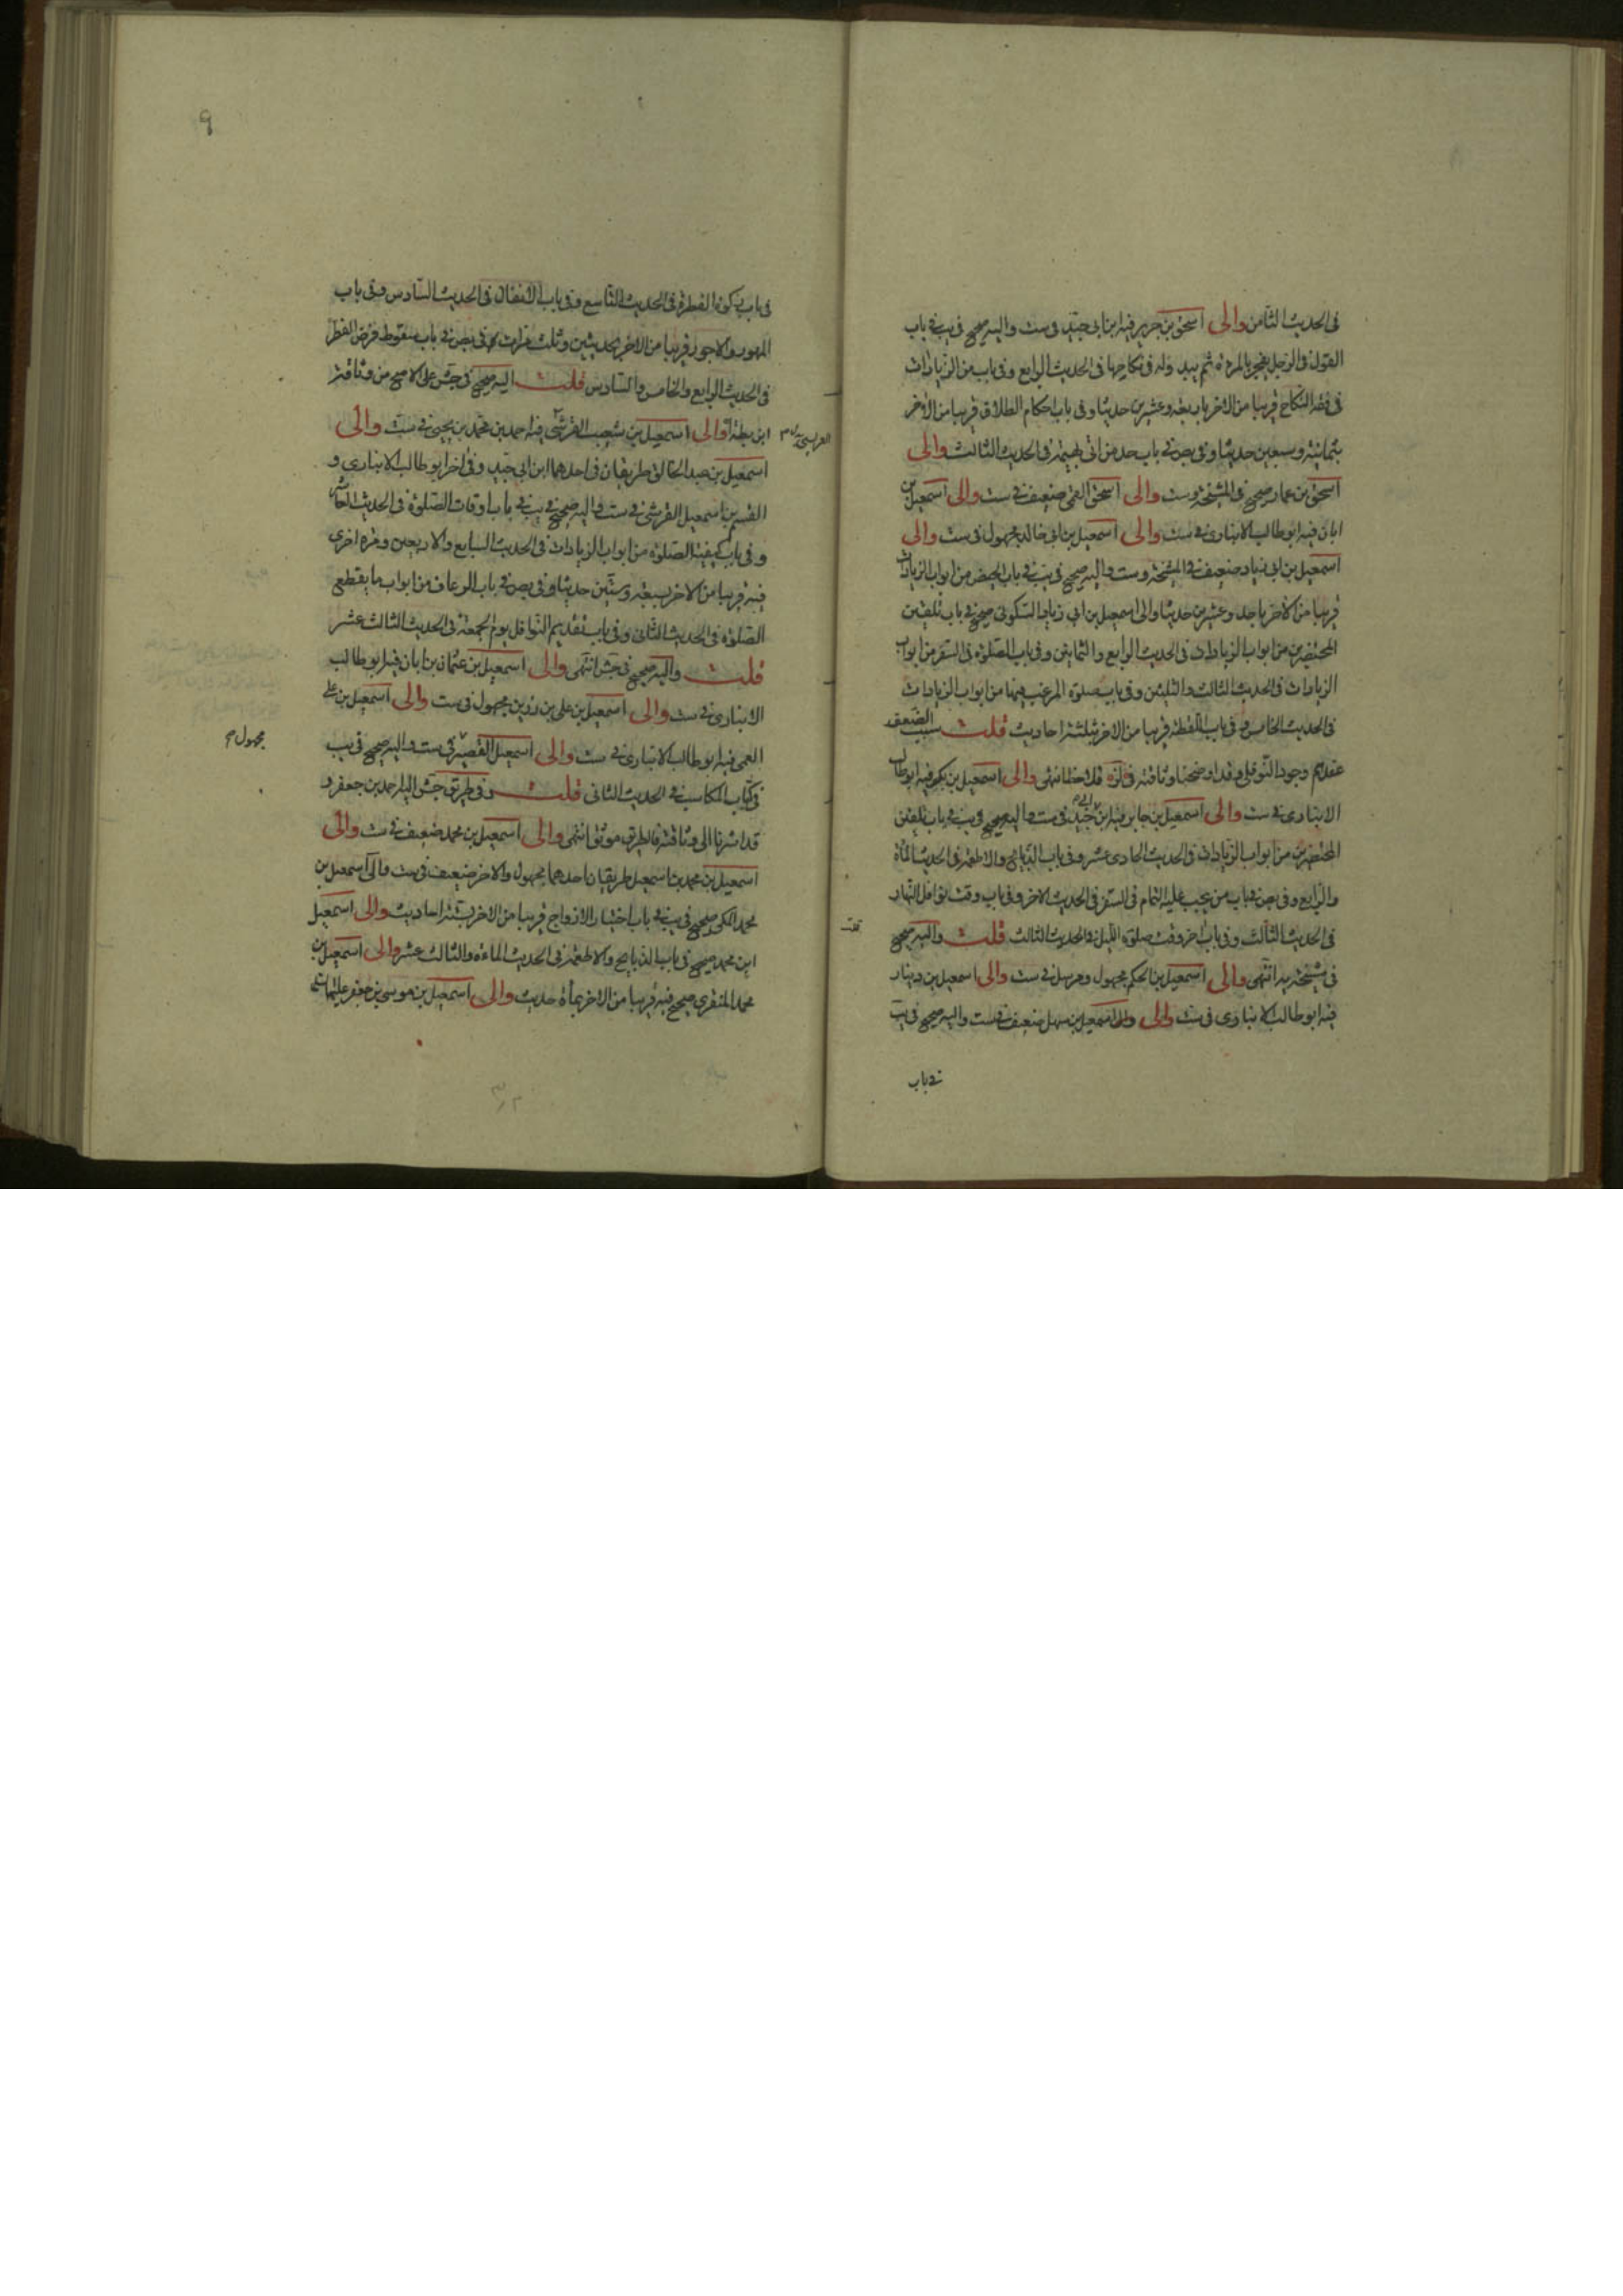 فى الحديث الثامن والى اسحق بن جرير فيه ابن ابى جيد فى ست واليه صحيح فى يب فى باب
القول فى الرجل يفجر بالمرءة ثم يبدو له فى نكاحها فى الحديث الرابع وفى باب من الزيادات
فى فقه النكاح قريبا من الاخر باربعة وعشرين حديثا وفى باب احكام الطلاق قريبا من الاخر
بثمانية وسبعين حديثا وفى بص فى باب حد من اتى بهيمة فى الحديث الثالث والى
اسحق بن عمار صحيح فى المشيخة وست والى اسحق القمى ضعيف فى ست والى اسمعيل بن
ابان فيه ابو طالب الانبارى فى ست والى اسمعيل بن ابى خالد مجهول فى ست والى
اسمعيل بن ابى زياد ضعيف فى المشيخة وست واليه صحيح فى يب فى باب الحيض من ابواب الزيادات
قريبا من الاخر باحد وعشرين حديثا والى اسمعيل بن ابى زياد السكونى صحيح فى باب تلقين
المحتضرين من ابواب الزيادات فى الحديث الرابع والثمانين وفى باب الصلوة فى السفر من ابواب
الزيادات فى الحديث الثالث والثلثين وفى باب صلوة المرغب فيها من ابواب الزيادات
فى الحديث الخامس وفى باب اللقطة قريبا من الاخر بثلثة احاديث قلت سبب الضعف
عندهم وجود النوفلى وقد اوضحنا وثاقته فلاحظ انتهى والى اسمعيل بن بكر فيه ابو طالب
الانبارى فى ست والى اسمعيل بن جابر فيه ابن ابى جيد فى ست واليه صحيح فى يب فى باب تلقين
المحتضرين من ابواب الزيادات فى الحديث الحادى عشر وفى باب الذبائح والاطعمة فى الحديث المأة
والرابع وفى بص فى باب من يجب عليه التمام فى السفر فى الحديث الاخر وفى باب وقت نوافل النهار
فى الحديث الثالث وفى باب اخر وقت صلوة الليل فى الحديث الثالث قلت واليه صحيح
فى مشيخة يه انتهى والى اسمعيل بن الحكم مجهول ومرسل فى ست والى اسمعيل بن دينار
فيه ابو طالب الانبارى فى ست والى اسمعيل بن سهل ضعيف فى ست واليه صحيح فى يب
فى باب
٩
فى باب زكوة الفطرة فى الحديث التاسع وفى باب الانفال فى الحديث السادس وفى باب
المهور والاجور قريبا من الاخر بحديثين وثلث مرات وفى بص فى باب سقوط فرض الفطرة
فى الحديث الرابع والخامس والسادس قلت اليه صحيح فى جش على الاصح من وثاقة
ابن بطة والى اسمعيل بن شعيب القرشى فيه احمد بن محمد بن يحيى فى ست والى
اسمعيل بن عبد الخالق طريقان فى احدهما ابن ابى جيد وفى اخر ابو طالب الانبارى و
القسم بن اسمعيل القرشى فى ست واليه صحيح فى يب فى باب اوقات الصلوة فى الحديث العاشر
وفى باب كيفية الصلوة من ابواب الزيادات فى الحديث السابع والاربعين ومرة اخرى
فيه قريبا من الاخر بسبعة وستين حديثا وفى بص فى باب الرعاف من ابواب ما يقطع
الصلوة فى الحديث الثانى وفى باب تقديم النوافل يوم الجمعة فى الحديث الثالث عشر
قلت واليه صحيح فى جش انتهى والى اسمعيل بن عثمان بن ابان فيه ابو طالب
الانبارى فى ست والى اسمعيل بن على بن رزين مجهول فى ست والى اسمعيل بن على
العمى فيه ابو طالب الانبارى فى ست والى اسمعيل القصير فى ست واليه صحيح فى يب
فى كتاب المكاسب فى الحديث الثانى قلت وفى طريق جش اليه احمد بن جعفر و
قد اشرنا الى وثاقته فالطريق موثق انتهى والى اسمعيل بن محمد ضعيف فى ست والى
اسمعيل بن محمد بن اسمعيل طريقان احدهما مجهول والاخر ضعيف فى ست والى اسمعيل بن
محمد المكى صحيح فى يب فى باب اختيار الازواج قريبا من الاخر بستة احاديث والى اسمعيل
ابن محمد صحيح فى باب الذبايح والاطعمة فى الحديث الماءة والثالث عشر والى اسمعيل بن
محمد المنقرى صحيح فيه قريبا من الاخر بمأة حديث والى اسمعيل بن موسى بن جعفر عليهما
مجهول م